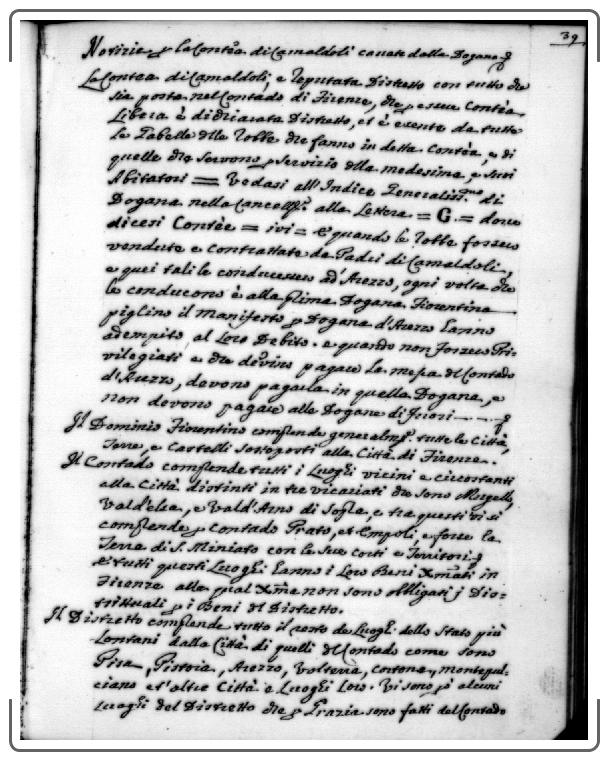 39
Notizie p. la Contea di Camaldoli cavate dalla Dogana
La Contea di Camaldoli, è reputata Distretto con tutto che
sia posta nel Contado di Firenze, che p. essere Contea
Libera è dichiarata Distretto, et è esente da tutte
le Gabelle delle robbe che fanno in detta Contea, e di
quelle che servono p. servizio della medesima, e suoi
Abitatori = Vedasi all'Indice Generaliss.mo di
Dogana nella Cancell. alla Lettera = C. = dove
dicesi Contèe = ivi = E quando le robbe fossero
vendute e contrattate da Padri di Camaldoli,
e quei tali le conducessero ad Arezzo, ogni volta che
le conducono è alla prima Dogana Fiorentina
piglino il Manifesto p. Dogana d'Arezzo hanno
adempito al loro Debito. e quando non fossero Pri-
vilegiati e che devino pagare la mesa del Contado
d'Arezzo, devono pagarla in quella Dogana, e
non devono pagare alle Dogane di fuori
Il Dominio Fiorentino comprende generalm. tutte le Città,
Terre, e Castelli sottoposti alla Città di Firenze.
Il Contado comprende tutti i Luoghi vicini e circostanti
alla Città distinti in tre vicariati che sono Mugello,
Vald'elsa, e Vald'Arno di Sopra, e tra questi vi si
comprende p. Contado Prato, et Empoli, e forse la
Terra di S. Miniato con le sue Corti e Territori
E tutti questi Luoghi hanno i loro Beni Xmati in
Firenze alla qual Xma non sono obbligati i Dis-
trittuali p. i Beni del Distretto.
Il Distretto comprende tutto il resto de Luoghi dello Stato più
Lontani dalla Città di quelli del Contado come sono
Pisa, Pistoia, Arezzo, Volterra, Cortona, Montepul-
ciano et altre Città e Luoghi loro. Vi sono p. alcuni
Luoghi del Distretto che p. Grazia sono fatti del Contado